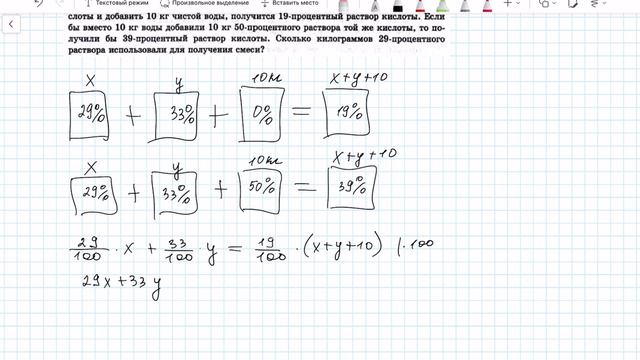 Текстовый режим Произвольное выделение
слоты и добавить 10 кг чистой воды, получится 19-процентный раствор кислоты. Если
бы вместо 10 кг воды добавили 10 кг 50-процентного раствора той же кислоты, то по-
лучили бы 39-процентный раствор кислоты. Сколько килограммов 29-процентного
раствора использовали для получения смеси?
x y 10кг x+y+10
29% + 33% + 0% = 19%
x y 10кг x+y+10
29% + 33% + 50% = 39%
29/100 · x + 33/100 · y = 19/100 · (x+y+10) | · 100
29x+33y